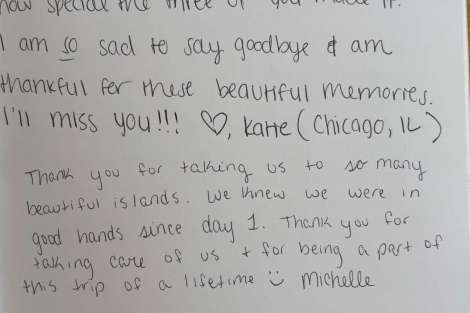 how special the three of you made it.
I am so sad to say goodbye & am
thankful for these beautiful memories.
I'll miss you!!! ♡, Katie (Chicago, IL)
Thank you for taking us to so many
beautiful islands. We knew we were in
good hands since day 1. Thank you for
taking care of us + for being a part of
this trip of a lifetime :) Michelle